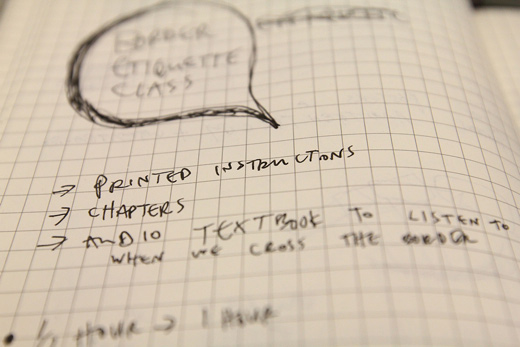 BORDER
ETIQUETTE
CLASS
→ PRINTED INSTRUCTIONS
→ CHAPTERS
→ AUDIO TEXTBOOK TO LISTEN TO
WHEN WE CROSS THE BORDER
• ½ HOUR → 1 HOUR